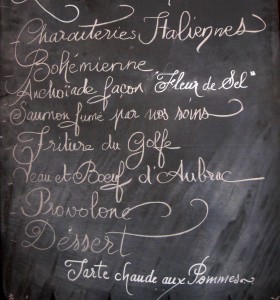 Charcuteries Italiennes
Bohémienne
Anchoïade façon "Fleur de Sel"
Saumon fumé par nos soins
Friture du Golfe
Veau et Bœuf d'Aubrac
Provolone
Dessert
Tarte chaude aux Pommes